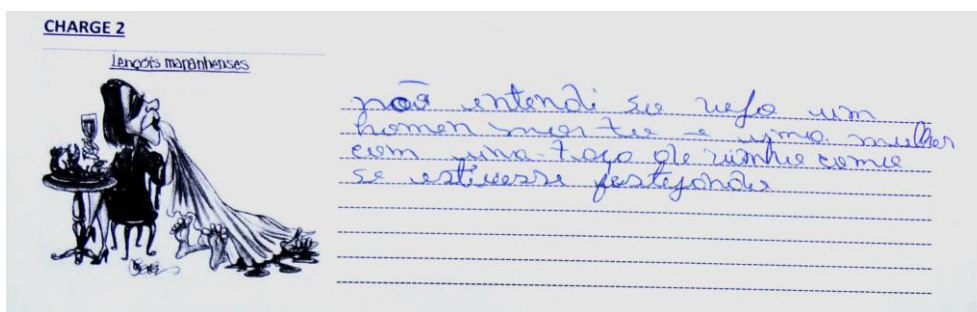 CHARGE 2
Lençóis maranhenses
não entendi so vejo um
homen morto e uma mulher
com uma taça de vinho como
se estivesse festejando